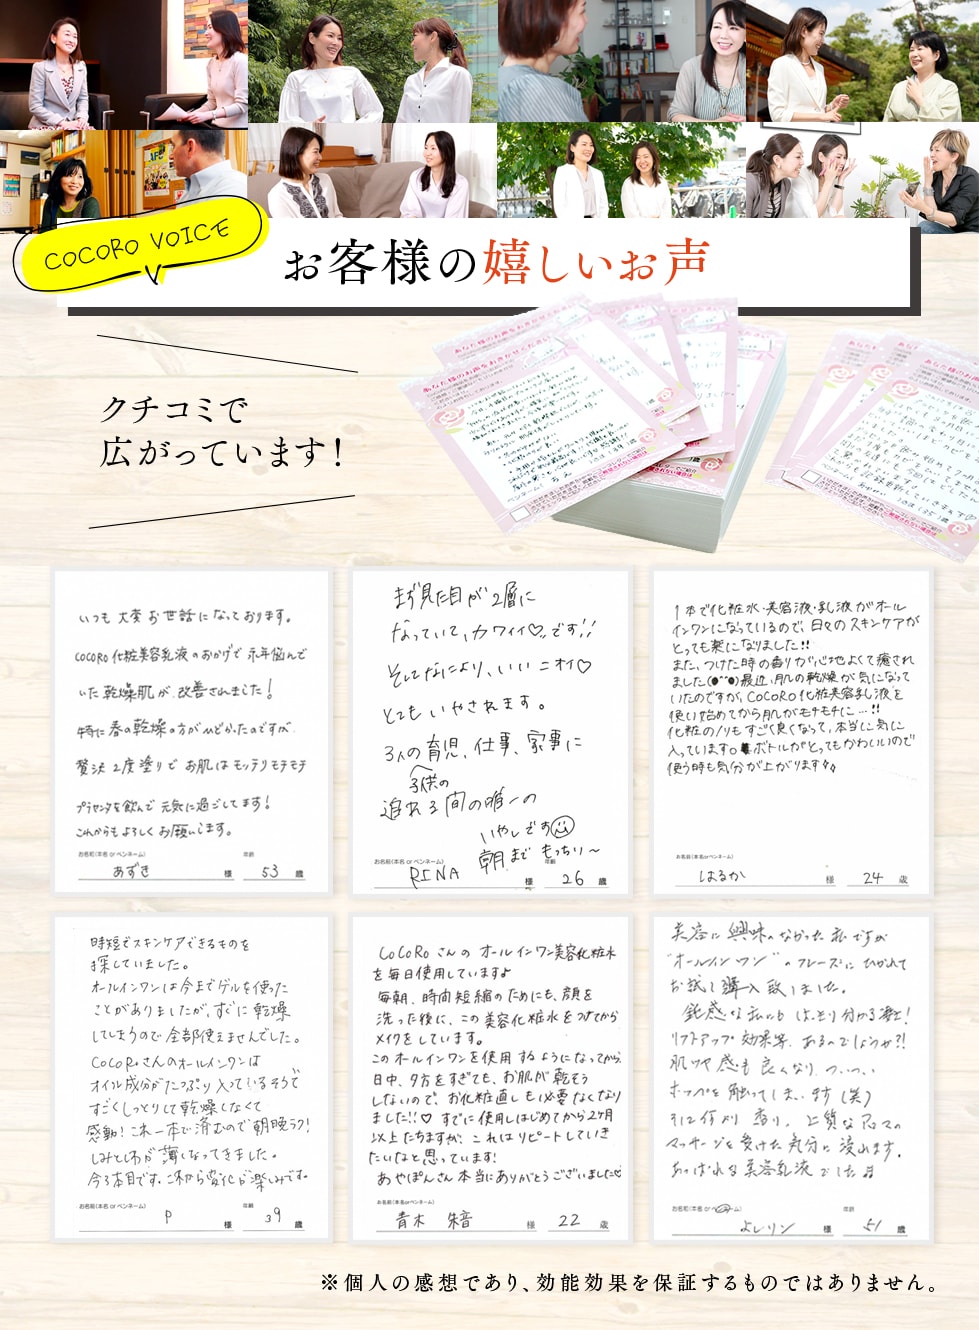 COCORO VOICE
お客様の嬉しいお声
クチコミで
広がっています!
あなた様のお声をおきかせください
いつも 大変お世話になっております。
COCORO化粧美容乳液のおかげで 永年悩んで
いた 乾燥肌が 改善されました!
特に 春の乾燥の方がひどかったのですが
贅沢 2度塗りで お肌は モッチリ モチモチ
プラセンタを飲んで 元気に過ごしてます!
これからも よろしく お願いします。
お名前(本名 or ペンネーム)
年齢
あずき 様 53 歳
まず見た目が2層に
なっていて、カワイイ♡です!!
そしてなにより、いいニオイ♡
とてもいやされます。
3人の育児、仕事、家事に
子供の
追われる間の唯一の
いやしです☺
朝まで もっちり〜
お名前(本名 or ペンネーム)
年齢
RINA 様 26 歳
1本で化粧水・美容液・乳液がオール
インワンになっているので、日々のスキンケアが
とっても楽になりました!!
また、つけた時の香りが心地よくて癒され
ました(●^^●)最近、肌の乾燥が気になって
いたのですが、COCORO化粧美容乳液を
使い始めてから肌がモチモチに…!!
化粧のノリもすごく良くなって、本当に気に
入っています。ボトルがとってもかわいいので
使う時も気分が上がります♪♪
お名前(本名orペンネーム)
年齢
はるか 様 24 歳
時短でスキンケアできるものを
探していました。
オールインワンは今までゲルを使った
ことがありましたが、すぐに乾燥
してしまうので全部使えませんでした。
COCOROさんのオールインワンは
オイル成分がたっぷり入っているそうで
すごくしっとりして乾燥しなくて
感動!これ一本で済むので朝晩ラク!
しみとしわが薄くなってきました。
今3本目です。これから変化が楽しみです。
お名前(本名 or ペンネーム)
年齢
P 様 39 歳
COCOROさんの オールインワン美容化粧水
を毎日使用していますよ
毎朝、時間短縮のためにも、顔を
洗った後に、この美容化粧水をつけてから
メイクをしています。
このオールインワンを使用するようになってから
日中、夕方をすぎても、お肌が乾そう
しないので、お化粧直しも必要なくなり
ました!!♡ すでに使用しはじめてから2ヶ月
以上たちますが、これはリピートしていき
たいなと思っています!
あやぽんさん本当にありがとうございました♡
お名前(本名 or ペンネーム)
年齢
青木 朱音 様 22 歳
美容に興味のなかった私ですが
"オールインワン"のフレーズにひかれて
お試し購入致しました。
鈍感な私にも はっきり分かる凄さ!
リフトアップ効果等、あるのでしょうか?!
肌ツヤ感も良くなり、ついつい
ホッペを触ってしまいます(笑)
引に何より香り。上質なアロマの
マッサージを受けた気分に浸れます。
あっぱれな美容乳液でした♬
お名前(本名 or ペンネーム)
年齢
よしリン 様 51 歳
※個人の感想であり、効能効果を保証するものではありません。